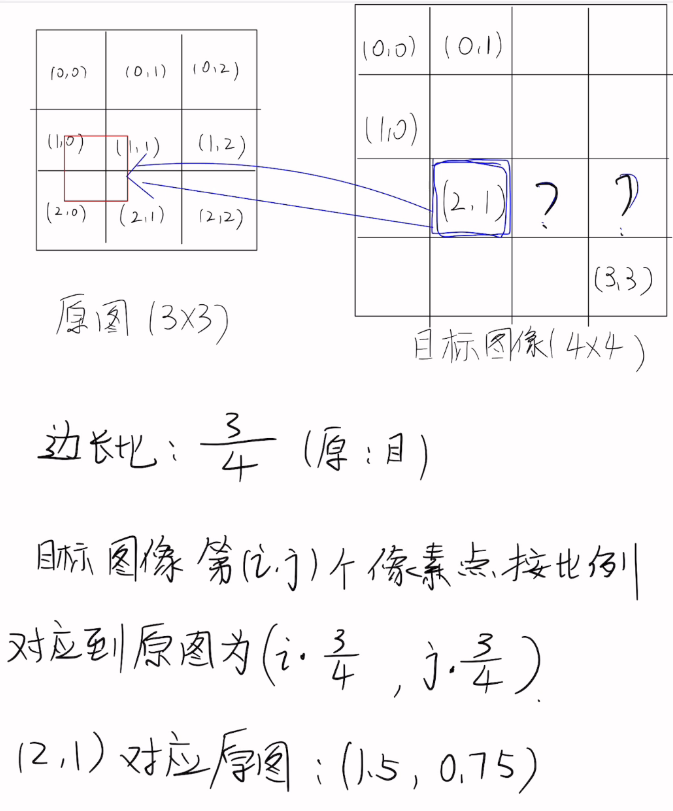 (0,0) (0,1) (0,2)
(1,0) (1,1) (1,2)
(2,0) (2,1) (2,2)
原图 (3×3)
(0,0) (0,1)
(1,0)
(2,1) ? ?
(3,3)
目标图像(4×4)
边长比: 3/4 (原:目)
目标图像第(i,j)个像素点按比例
对应到原图为(i·3/4, j·3/4)
(2,1)对应原图:(1.5, 0.75)